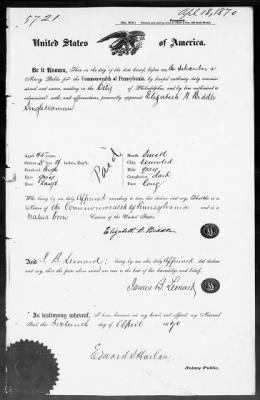 5721
Apl 18, 1870
United States of America.
Be it Known, That on the day of the date hereof, before me the subscriber a
Notary Public for the Commonwealth of Pennsylvania, by lawful authority duly commis-
sioned and sworn, residing in the City of Philadelphia, and by law authorized to
administer oaths and affirmations, personally appeared Elizabeth N Biddle
Singlewoman
Aged 45 years
Stature 5 ft inches, Eng.
Forehead high
Eyes grey
Nose large
Paid
Mouth small
Chin rounded
Hair grey
Complexion dark
Face long
Who being by me duly Affirmed according to law, did declare and say, That he is a
Native of the Commonwealth of Pennsylvania and is a
native born Citizen of the United States.
Elizabeth N. Biddle
And J. B. Leonard being by me also duly Affirmed did declare
and say, that the facts above stated are true to the best of his knowledge and belief.
James B. Leonard
In testimony whereof, I have hereunto set my hand and affixed my Notarial
Seal, this Sixteenth day of April 1870
Edward S Harlan
Notary Public.